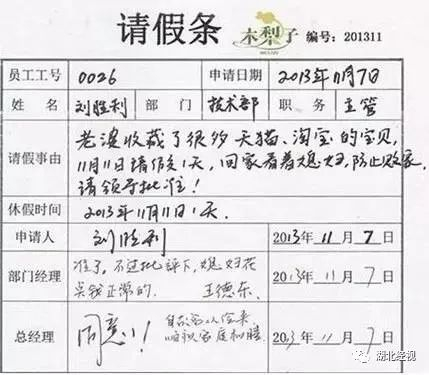 请假条 木梨子 编号:201311
员工工号 0026 申请日期 2013年11月7日
姓名 刘胜利 部门 技术部 职务 主管
请假事由 老婆收藏了很多天猫、淘宝的宝贝,
11月11日请假1天,回家看着媳妇,防止败家。
请领导批准!
休假时间 2013年11月11日1天.
申请人 刘胜利 2013年11月7日
部门经理 准了,不过批评下,媳妇花
点钱正常的. 王德东 2013年11月7日
总经理 同意! 自古客以
家庭和睦 2013年11月7日
湖北经视